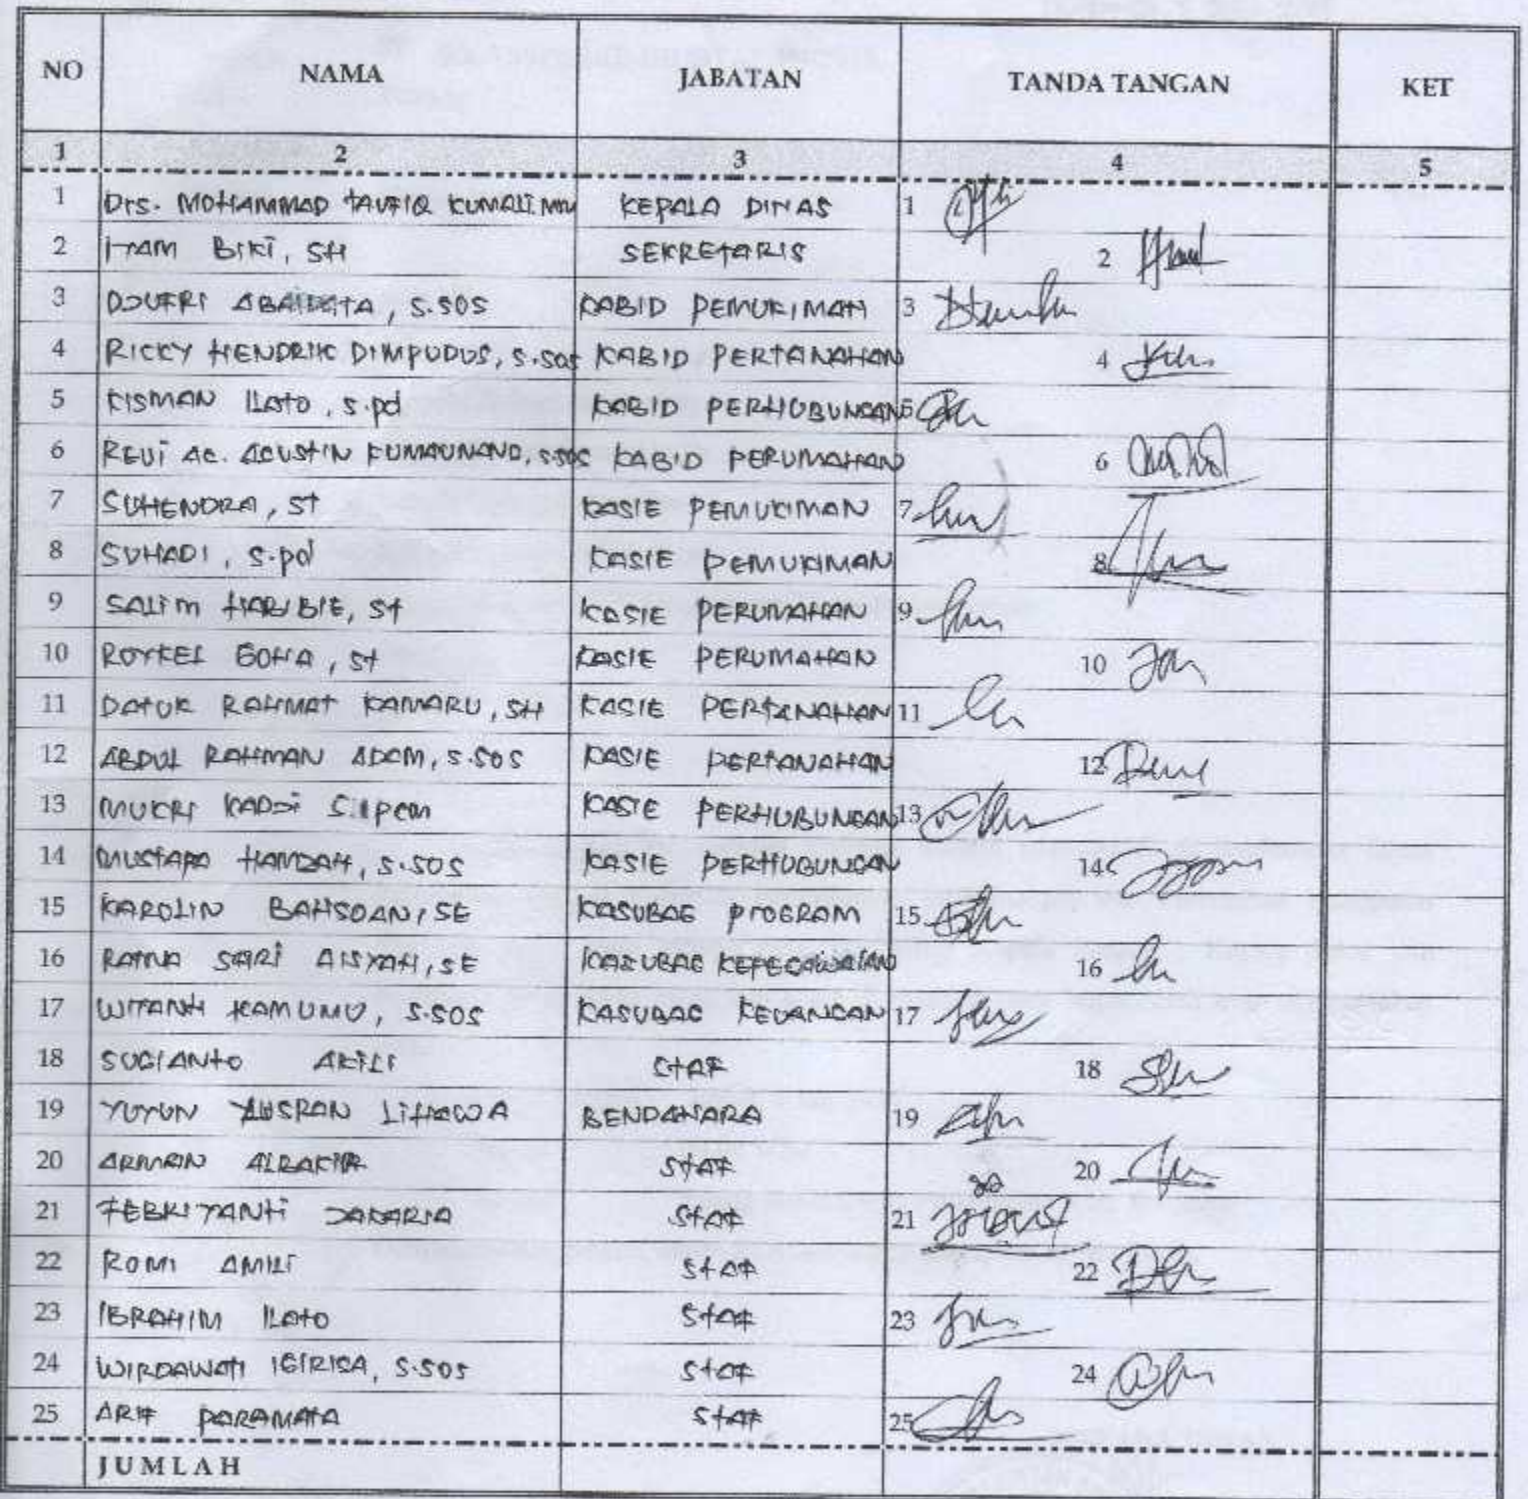 NO NAMA JABATAN TANDA TANGAN KET
1 2 3 4 5
1 Drs. MOHAMMAD TAUFIQ KUMALI KEPALA DINAS 1
2 ITAM BIKI, SH SEKRETARIS 2
3 DJUFRI S.SOS KABID PEMUKIMAN 3
4 RICKY HENDRIK DIMPUDUS, S.SOS KABID PERTANAHAN 4
5 KISMAN ILATO, S.pd KABID PERHUBUNGAN 5
6 REVI AC. AGUSTIN S.SOS KABID PERUMAHAN 6
7 SUHENDRA, ST KASIE PEMUKIMAN 7
8 SUHADI, S.pd KASIE PEMUKIMAN 8
9 SALIM HABIBIE, ST KASIE PERUMAHAN 9
10 ROYKEL ST KASIE PERUMAHAN 10
11 DATUK RAHMAT KAMARU, SH KASIE PERTANAHAN 11
12 ABDUL RAHMAN ADAM, S.SOS KASIE PERTANAHAN 12
13 MUKRI KADJI KASIE PERHUBUNGAN 13
14 MUSTAPA HAMZAH, S.SOS KASIE PERHUBUNGAN 14
15 KAROLIN BAHSOAN, SE KASUBAG PROGRAM 15
16 RATNA SARI AISYAH, SE KASUBAG KEPEGAWAIAN 16
17 WITANTI KAMUMU, S.SOS KASUBAG KEUANGAN 17
18 SUGIANTO AKILI STAF 18
19 YUYUN YUSRAN LIHAWA BENDAHARA 19
20 ARMAN STAF 20
21 FEBRIYANTI JAKARIA STAF 21
22 ROMI AMILI STAF 22
23 IBRAHIM ILATO STAF 23
24 WIRDAWATI IGIRISA, S.SOS STAF 24
25 ARIF PARAMATA STAF 25
JUMLAH